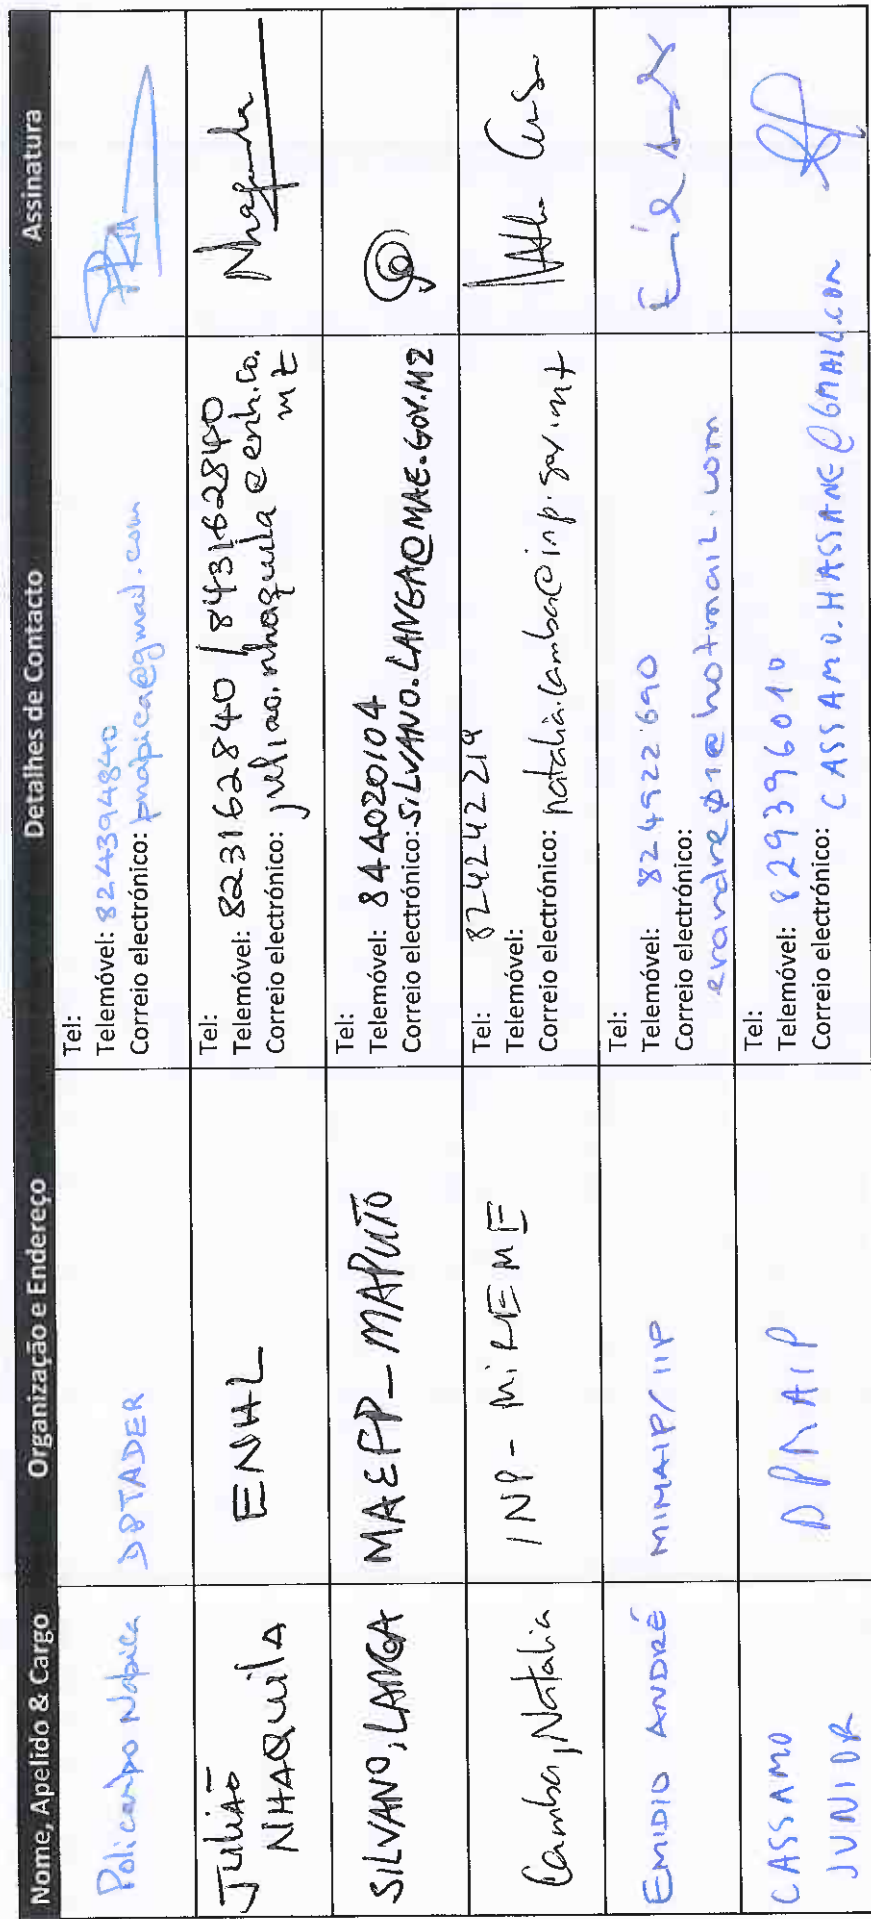 Nome, Apelido & Cargo Organização e Endereço Detalhes de Contacto Assinatura
Policarpo Napica DPTADER
Tel:
Telemóvel: 824394840
Correio electrónico: pnapica@gmail.com
Julião
NHAQuilA
ENHL
Tel:
Telemóvel: 823162840 / 843162840
Correio electrónico: juliao.nhaquila@enh.co.
mz
Nhaquila
SILVANO, LANGA MAEFP_MAPUTO
Tel:
Telemóvel: 844020104
Correio electrónico: SILVANO.LANGA@MAE.GOV.MZ
Camba, Natalia INP - MiREME
Tel: 824242219
Telemóvel:
Correio electrónico: natalia.camba@inp.gov.mz
EMIDIO ANDRÉ MIMAIP/IIP
Tel:
Telemóvel: 824922690
Correio electrónico:
erandre01@hotmail.com
CASSAMO
JUNIOR
DPMAIP
Tel:
Telemóvel: 829396010
Correio electrónico: CASSAMO.HASSANE@GMAIL.COM